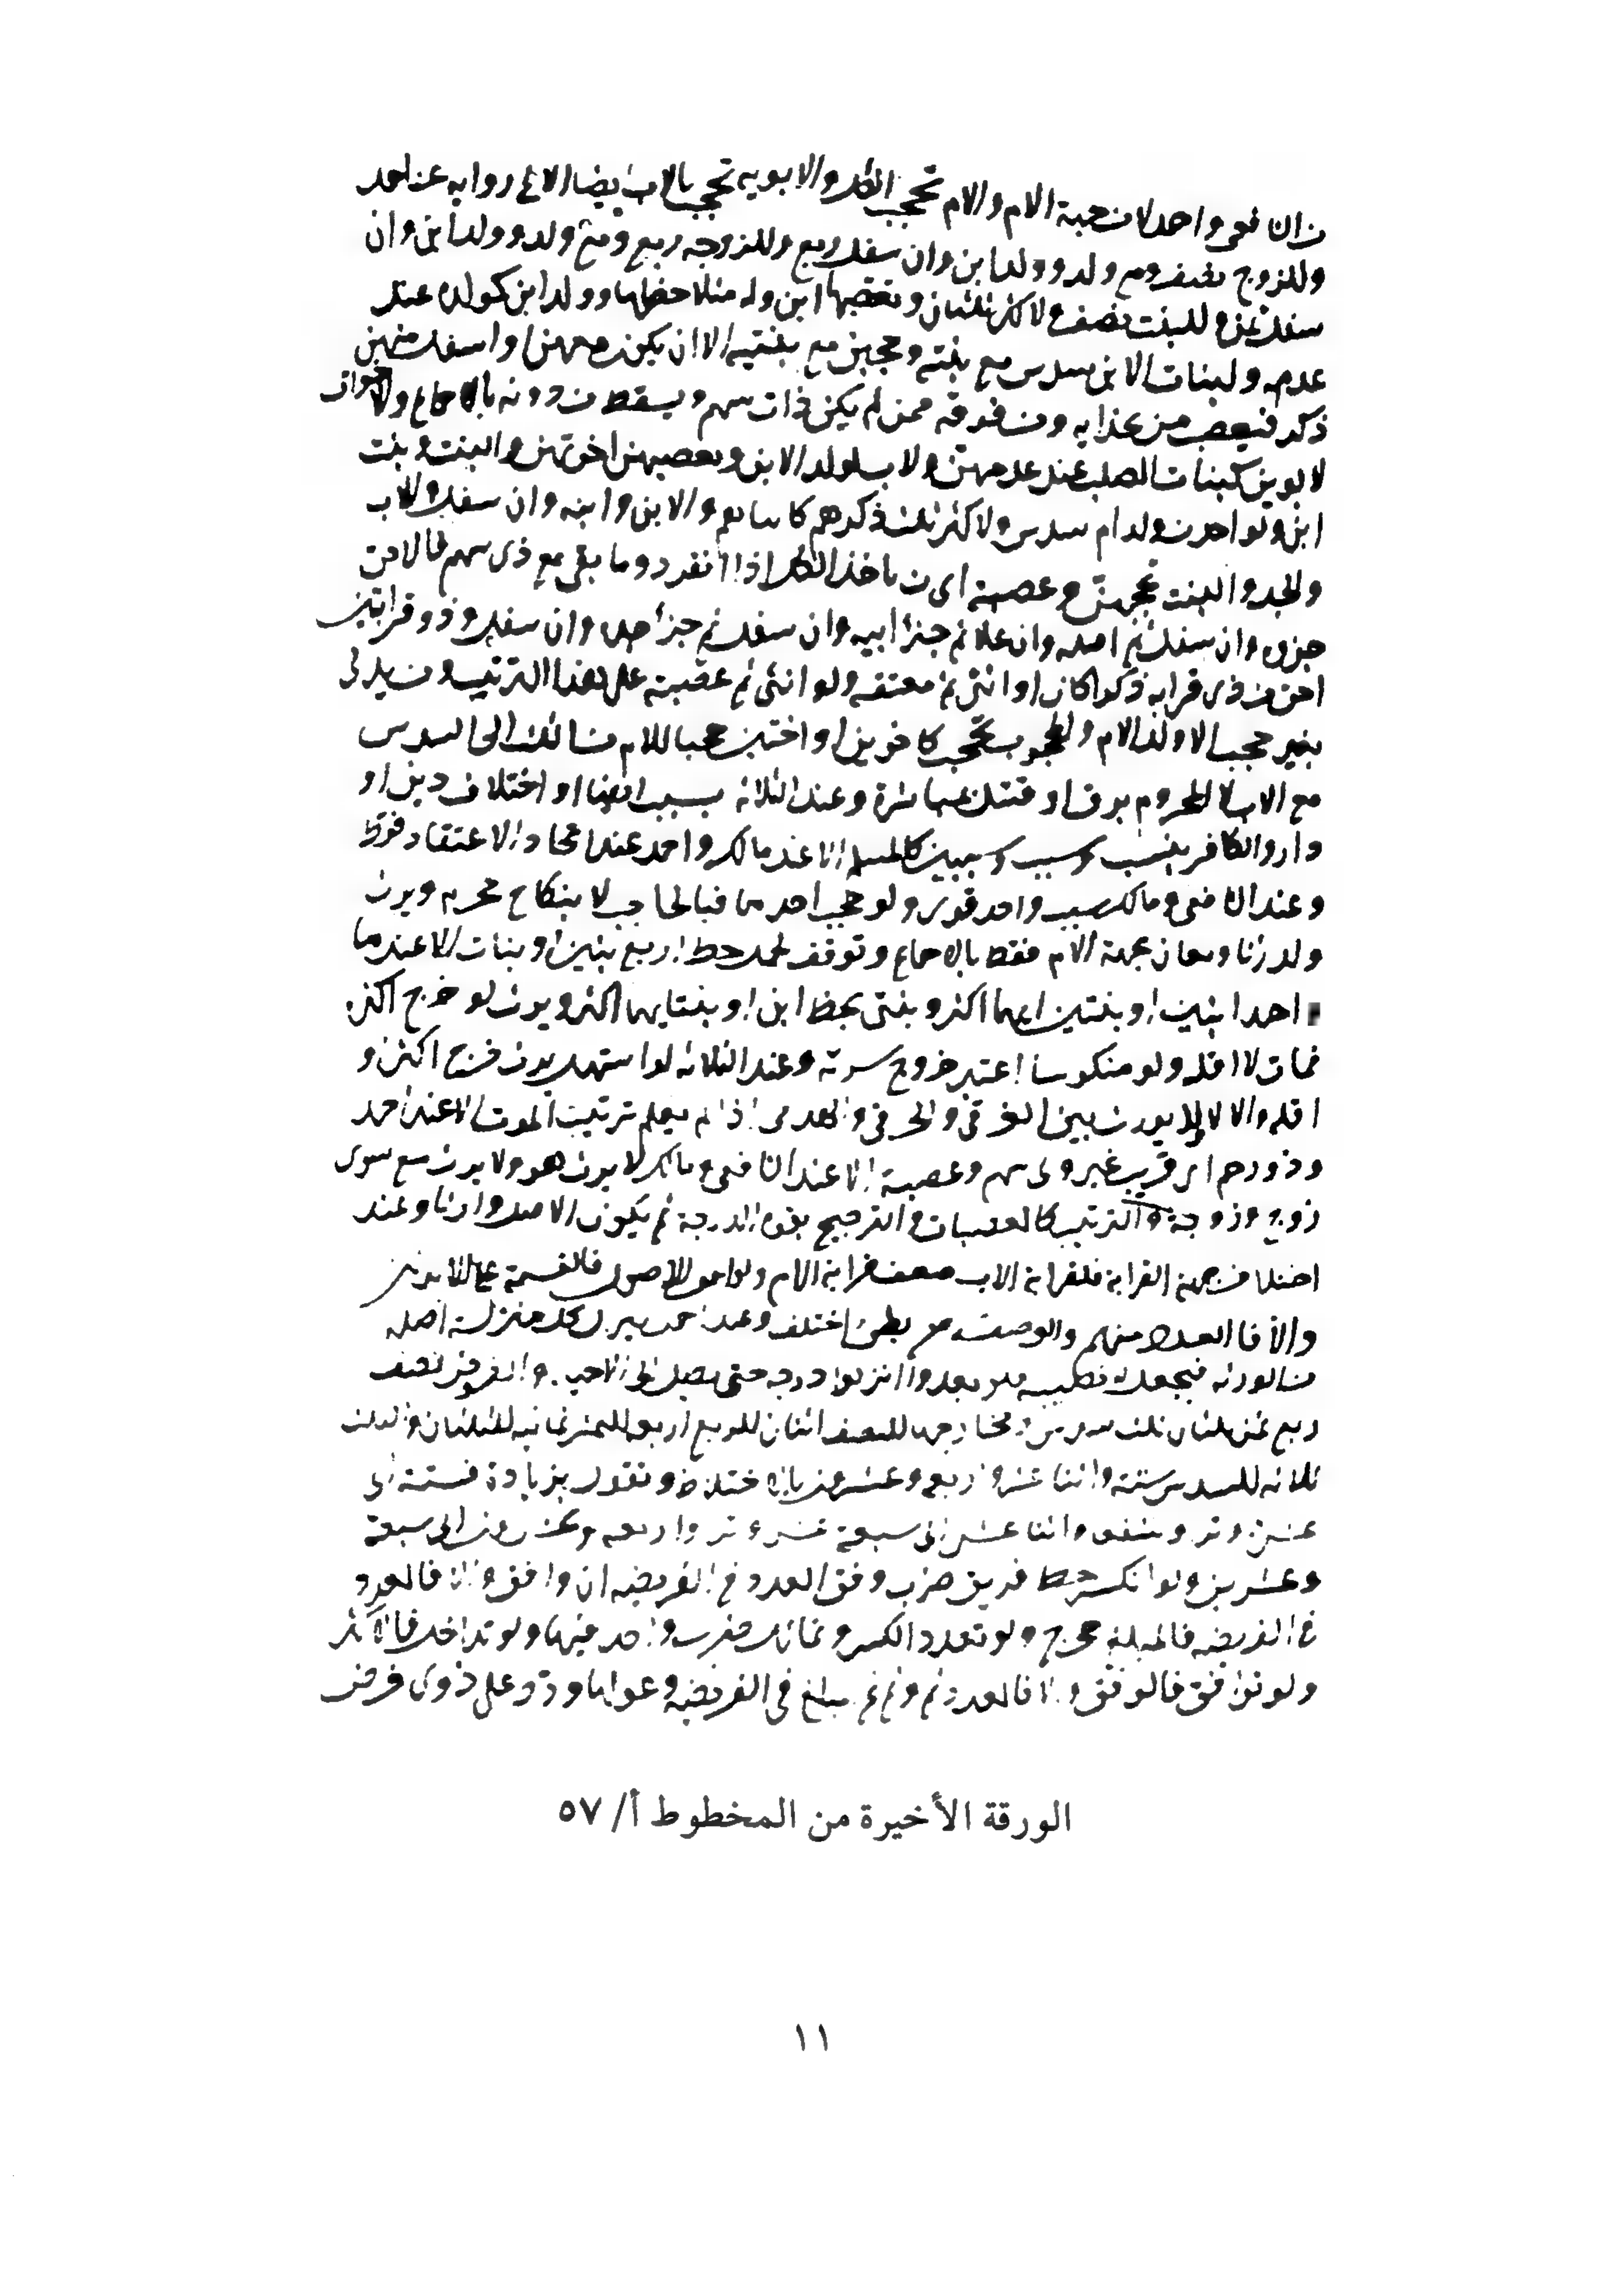 واحد لا من جهة الام والام تحجب الكل والابويه تحجب بالاب ايضا الا في رواية عند احمد
وللزوج نصف ومع ولد وولد ابن وان سفل ربع وللزوجه ربع ومع ولد وولد ابن وان
سفل ثمن وللبنت نصف ولاكثر ثلثان ويعصبها ابن وله مثلا حظها وولد ابن كولده عند
عدمه ولبنات الابن سدس مع بنته وحجبن مع بنتيه الا ان يكون معهن او اسفل منهن
ذكر فيعصب من بحذايه ومن فوقه ممن لم يكن ذات سهم ويسقط من دونه بالاجماع ولاخوات
لابوين كبنات الصلب عند عدمهن ولاب كولد الابن ويعصبهن اخوتهن والبنت وبنت
ابن ولواحد من ولد ام سدس ولاكثر ثلث ذكرهم كانثاهم والابن وابنه وان سفل والاب
والجد والبنت تحجبهن وعصبة اي من ياخذ الكل اذا انفرد وما بقي مع ذي سهم فالاحق
جزوه وان سفل ثم اصله وان علا ثم جزا ابيه وان سفل ثم جزا جده وان سفل وذو قرابتين
احق من ذي قرابه ذكرا كان او انثى ثم معتقه ولو انثى ثم عصبته على هذا الترتيب ومن يدلى
بغير حجب الا ولد الام والمحجوب يحجب كاخوين او اختين حجبا للام من الثلث الى السدس
مع الاب لا المحروم برق او قتل مباشرة وعند الثلاثه بسبب ايضا او اختلاف دين او
دار والكافر بنسب وسبب وسببين كالمسلم الا عند مالك واحمد عند اتحاد الاعتقاد فقط
وعند الشافعي ومالك بسبب واحد قوى ولو حجب احدهما فبالحاجب لا بنكاح محرم ويرث
ولد زنا ولعان بجهة الام فقط بالاجماع وتوقف لحمل حظ اربع بنين او بنات الا عند ما
احد ابنين او بنتين ايهما اكثر وبنتى بحظ ابن او بنت ايهما اكثر ويرث لو خرج اكثره
فمات لا اقله ولو منكوسا اعتبر خروج سرته وعند الثلاثه لو استهل يرث خرج اكثره او
اقله والا لا ولا يورث بين الغرقى والحرقى والهدمى اذا لم يعلم ترتيب الموت الا عند احمد
وذو رحم اي قريب غير ذي سهم وعصبة الا عند الشافعي ومالك لا يرث هو ولا يرث مع سوى
زوج وزوجة والترتيب كالعصبات والترجيح بقرب الدرجة ثم بكون الاصل وارثا وعند
اختلاف جهة القرابة فلقرابة الاب ضعف قرابة الام ولو اتفق الاصول فالقسمة على الابدان
والا فالعدد منهم والوصف من بطن اختلف وعند احمد ينزل كل منزلة اصله
من الورثه فيجعل له نصيبه فان بعدوا نزلوا درجه درجه حتى يصل الى الاحياء والفروض نصف
ربع ثمن ثلثان ثلث سدس ومخارجها للنصف اثنان للربع اربعه للثمن ثمانيه للثلثان والثلث
ثلاثه للسدس ستة واثنا عشر واربعه وعشرون بالاختلاط وتعول بزيادة فستة الى
عشرة وترا وشفعا واثنا عشر الى سبعة عشر وترا واربعه وعشرون الى سبعة
وعشرين ولو انكسر حظ فريق ضرب وفق العدد في الفريضه ان وافق والا فالعدد
في الفريضه فالمبلغ مخرج ولو تعدد الكسر وتماثل ضرب واحد فيها ولو تداخل فالاكثر
ولو توافق فالوفق والا فالعدد ثم وثم ثم مبلغ في الفريضه وعولها ورد على ذوى فرض
الورقة الأخيرة من المخطوط أ/ ٥٧
١١